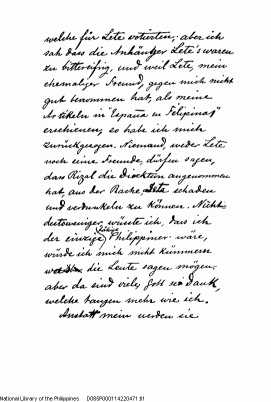 welche für Lete votirten; aber ich
sah dass die Anhänger Lete's waren
zu bitterifrig, und weil Lete, mein
ehemaliger Freund, gegen mich nicht
gut benommen hat, als meine
Artikeln in "España en Filipinas"
erschienen, so habe ich mich
zurückgezogen. Niemand, weder Lete
noch seine Freunde, dürfen sagen,
dass Rizal die Direktion angenommen
hat, aus der Rache Lete schaden
und verdunkeln zu können. Nichts
destoweniger, wüsste ich, dass ich
der einzige fähige Philippiner wäre,
würde ich mich nicht kümmern
was die Leute sagen mögen,
aber da sind viele, Gott sei Dank,
welche taugen mehr wie ich.
Anstatt mein werden sie
National Library of the Philippines